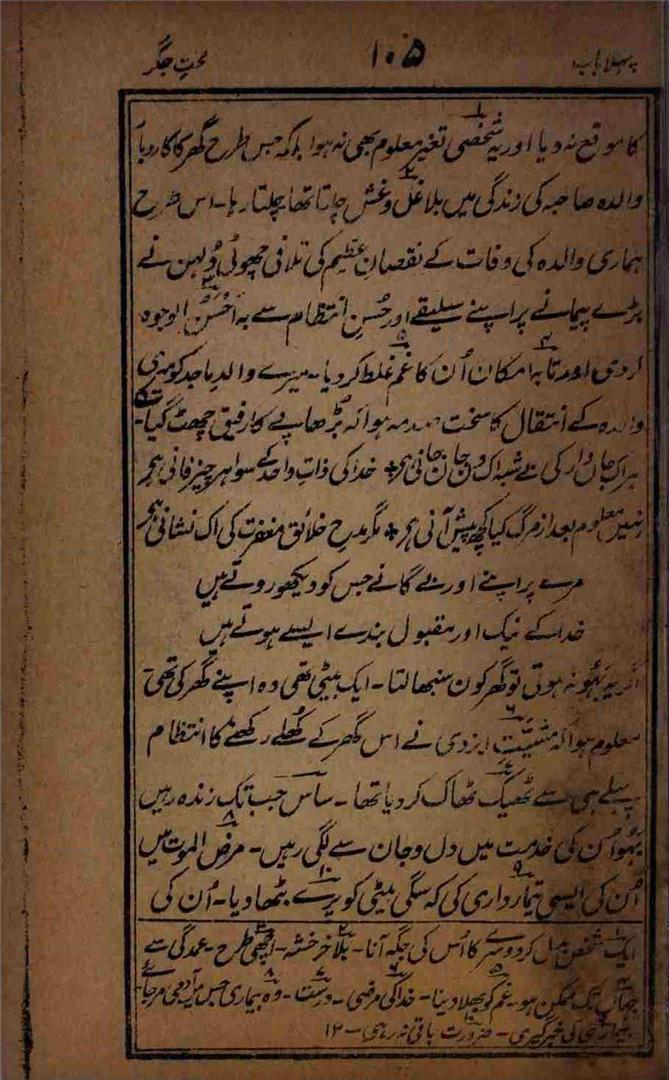 پہلا باب ۱۰۵ لخت جگر
کا موقع نہ دیا اور یہ شخصی تغیر معلوم بھی نہ ہوا بلکہ جس طرح گھر کا کاروبار
والدہ صاحبہ کی زندگی میں بلا غل و غش چلتا تھا چلتا رہا۔ اس طرح
ہماری والدہ کی وفات کے نقصانِ عظیم کی تلافی چھوٹی دُلہن نے
بڑے پیمانے پر اپنے سلیقے اور حُسنِ انتظام سے بہ احسن الوجوہ
کردی اور تا بہ امکان اُن کا غم غلط کردیا۔ میرے والد ماجد کو میری
والدہ کے انتقال کا سخت صدمہ ہوا کہ بڑھاپے کا رفیق چھٹ گیا۔
ہر اک جاں دار کی بے شبہ اک دن جان جانی ہے + خدا کی ذات واحد کے سوا ہر چیز فانی ہے
نہیں معلوم بعد از مرگ کیا کچھ پیش آنی ہے + مگر مدحِ خلائق مغفرت کی اک نشانی ہے
مرے پر اپنے اور بے گانے جس کو دیکھو روتے ہیں
خدا کے نیک اور مقبول بندے ایسے ہوتے ہیں
اگر یہ بہُو نہ ہوتی تو گھر کون سنبھالتا۔ ایک بیٹی تھی وہ اپنے گھر کی تھی
معلوم ہوا کہ مشیّت ایزدی نے اس گھر کے کُھلے رکھنے کا انتظام
پہلے ہی سے ٹھیک ٹھاک کردیا تھا۔ ساس جب تک زندہ رہیں
بہُو اُن کی خدمت میں دل و جان سے لگی رہیں۔ مرض الموت میں
اُن کی ایسی تیمارداری کی کہ سگی بیٹی کو پرے بٹھا دیا۔ اُن کی
ایک شخص بدل کر دوسرے کا اُس کی جگہ آنا۔ بلا خرخشہ۔ اچھی طرح۔ عمدگی سے
جہاں تک ممکن ہو۔ غم کو بھلا دینا۔ خدا کی مرضی۔ درست۔ وہ بیماری جس میں آدمی مرجائے
بیماری کی خبر گیری۔ ضرورت باقی نہ رہی۔ ۱۲